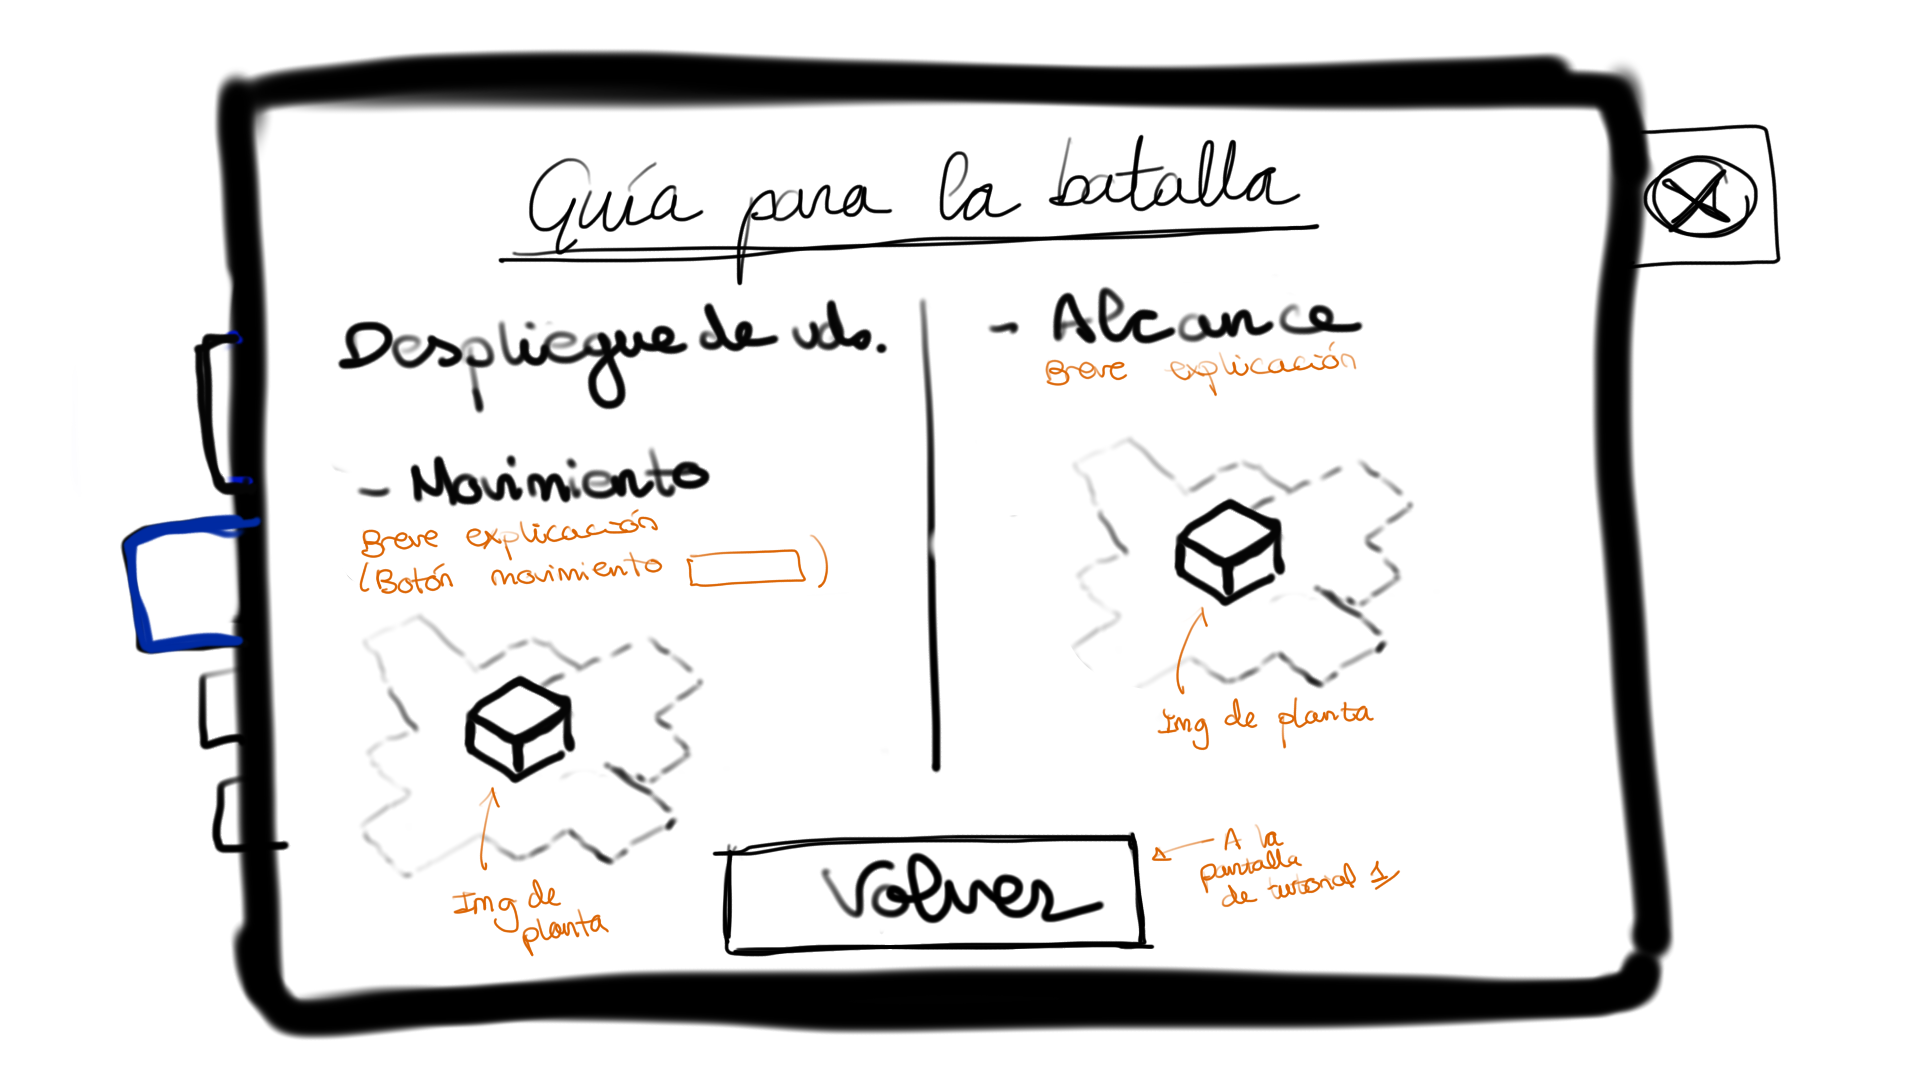 Guía para la batalla
Despliegue de uds.
- Movimiento
Breve explicación
(Botón movimiento )
Img de
planta
- Alcance
Breve explicación
Img de planta
Volver
A la
pantalla
de tutorial 1